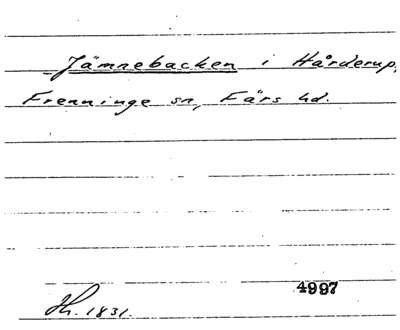 Jämnebacken i Hårderup,
Frenninge sn, Färs hd.
4997
Hh. 1831.